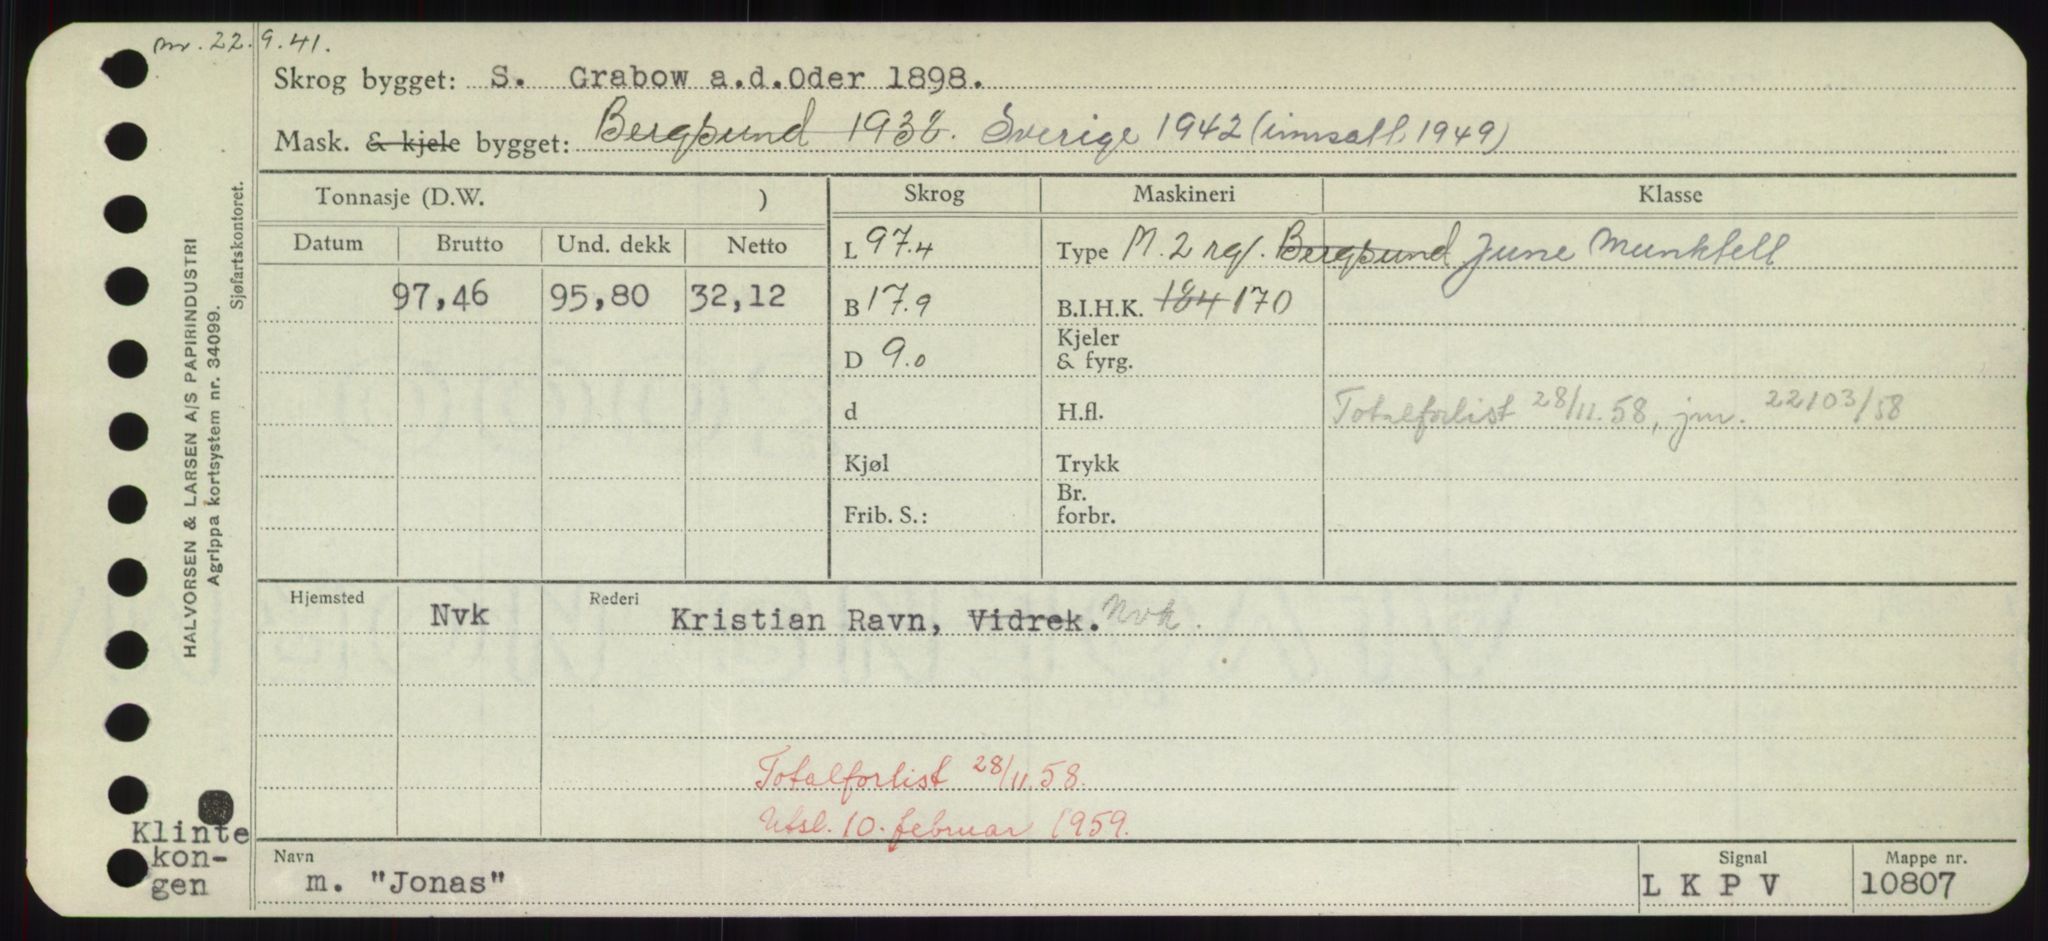 nr. 22.9.41.
Skrog bygget: S. Grabow a.d.Oder 1898.
Mask. & kjele bygget: Bergsund 1938. Sverige 1942 (innsatt 1949)
HALVORSEN & LARSEN A/S PAPIRINDUSTRI
Agrippa kortsystem nr. 34099.
Sjøfartskontoret.
Tonnasje (D.W. ) Skrog Maskineri Klasse
Datum Brutto Und. dekk Netto L 97.4 Type M. 2 rgf. Bergsund June Munktell
97,46 95,80 32,12 B 17.9 B.I.H.K. 184 170
D 9.0 Kjeler & fyrg.
d H.fl. Totalforlist 28/11.58, jnr. 22103/58
Kjøl Trykk
Frib. S.: Br. forbr.
Hjemsted Nvk Rederi Kristian Ravn, Vidrek. Nvk.
Totalforlist 28/11.58.
Utsl. 10. februar 1959.
Klinte
kon-
gen
Navn Signal Mappe nr.
m. "Jonas" L K P V 10807